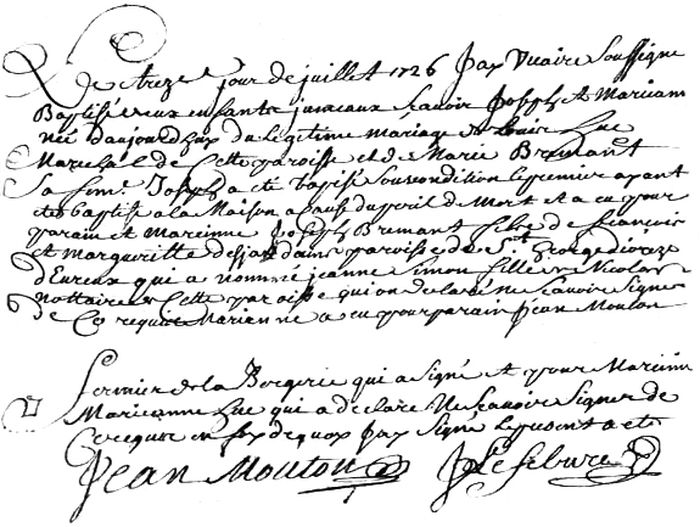 Le treze jour de juillet 1726 Jay Vicaire Soussigne
Baptisé deux enfants jumeaux Scavoir Joseph et Mariann
née daujourdhuy du legitime mariage de Louis Luc
Marechal de Cette paroisse et de Marie Bremant
Sa fem.e Joseph a eté baptisé Souscondition le premier ayant
eté baptisé a la Maison a Cause du peril de Mort et a eu pour
parain et Mareinne Joseph Bremant fils de francois
et margueritte desjardains paroisse de St George dioceze
dEureux qui a nommé jeanne Simon fille de Nicolas
Nottaire de Cette paroisse qui on declaré ne Scavoir Signer
de Ce requis Marienne a eu pour parain Jean Mouton
fermier de la Bergerie qui a Signé et pour Mareinne
Marieanne Luc qui a declaré Ne Scavoir Signer de
Ce requise en foy de quoy Jay Signé le present acte
Jean Mouton JLefebure